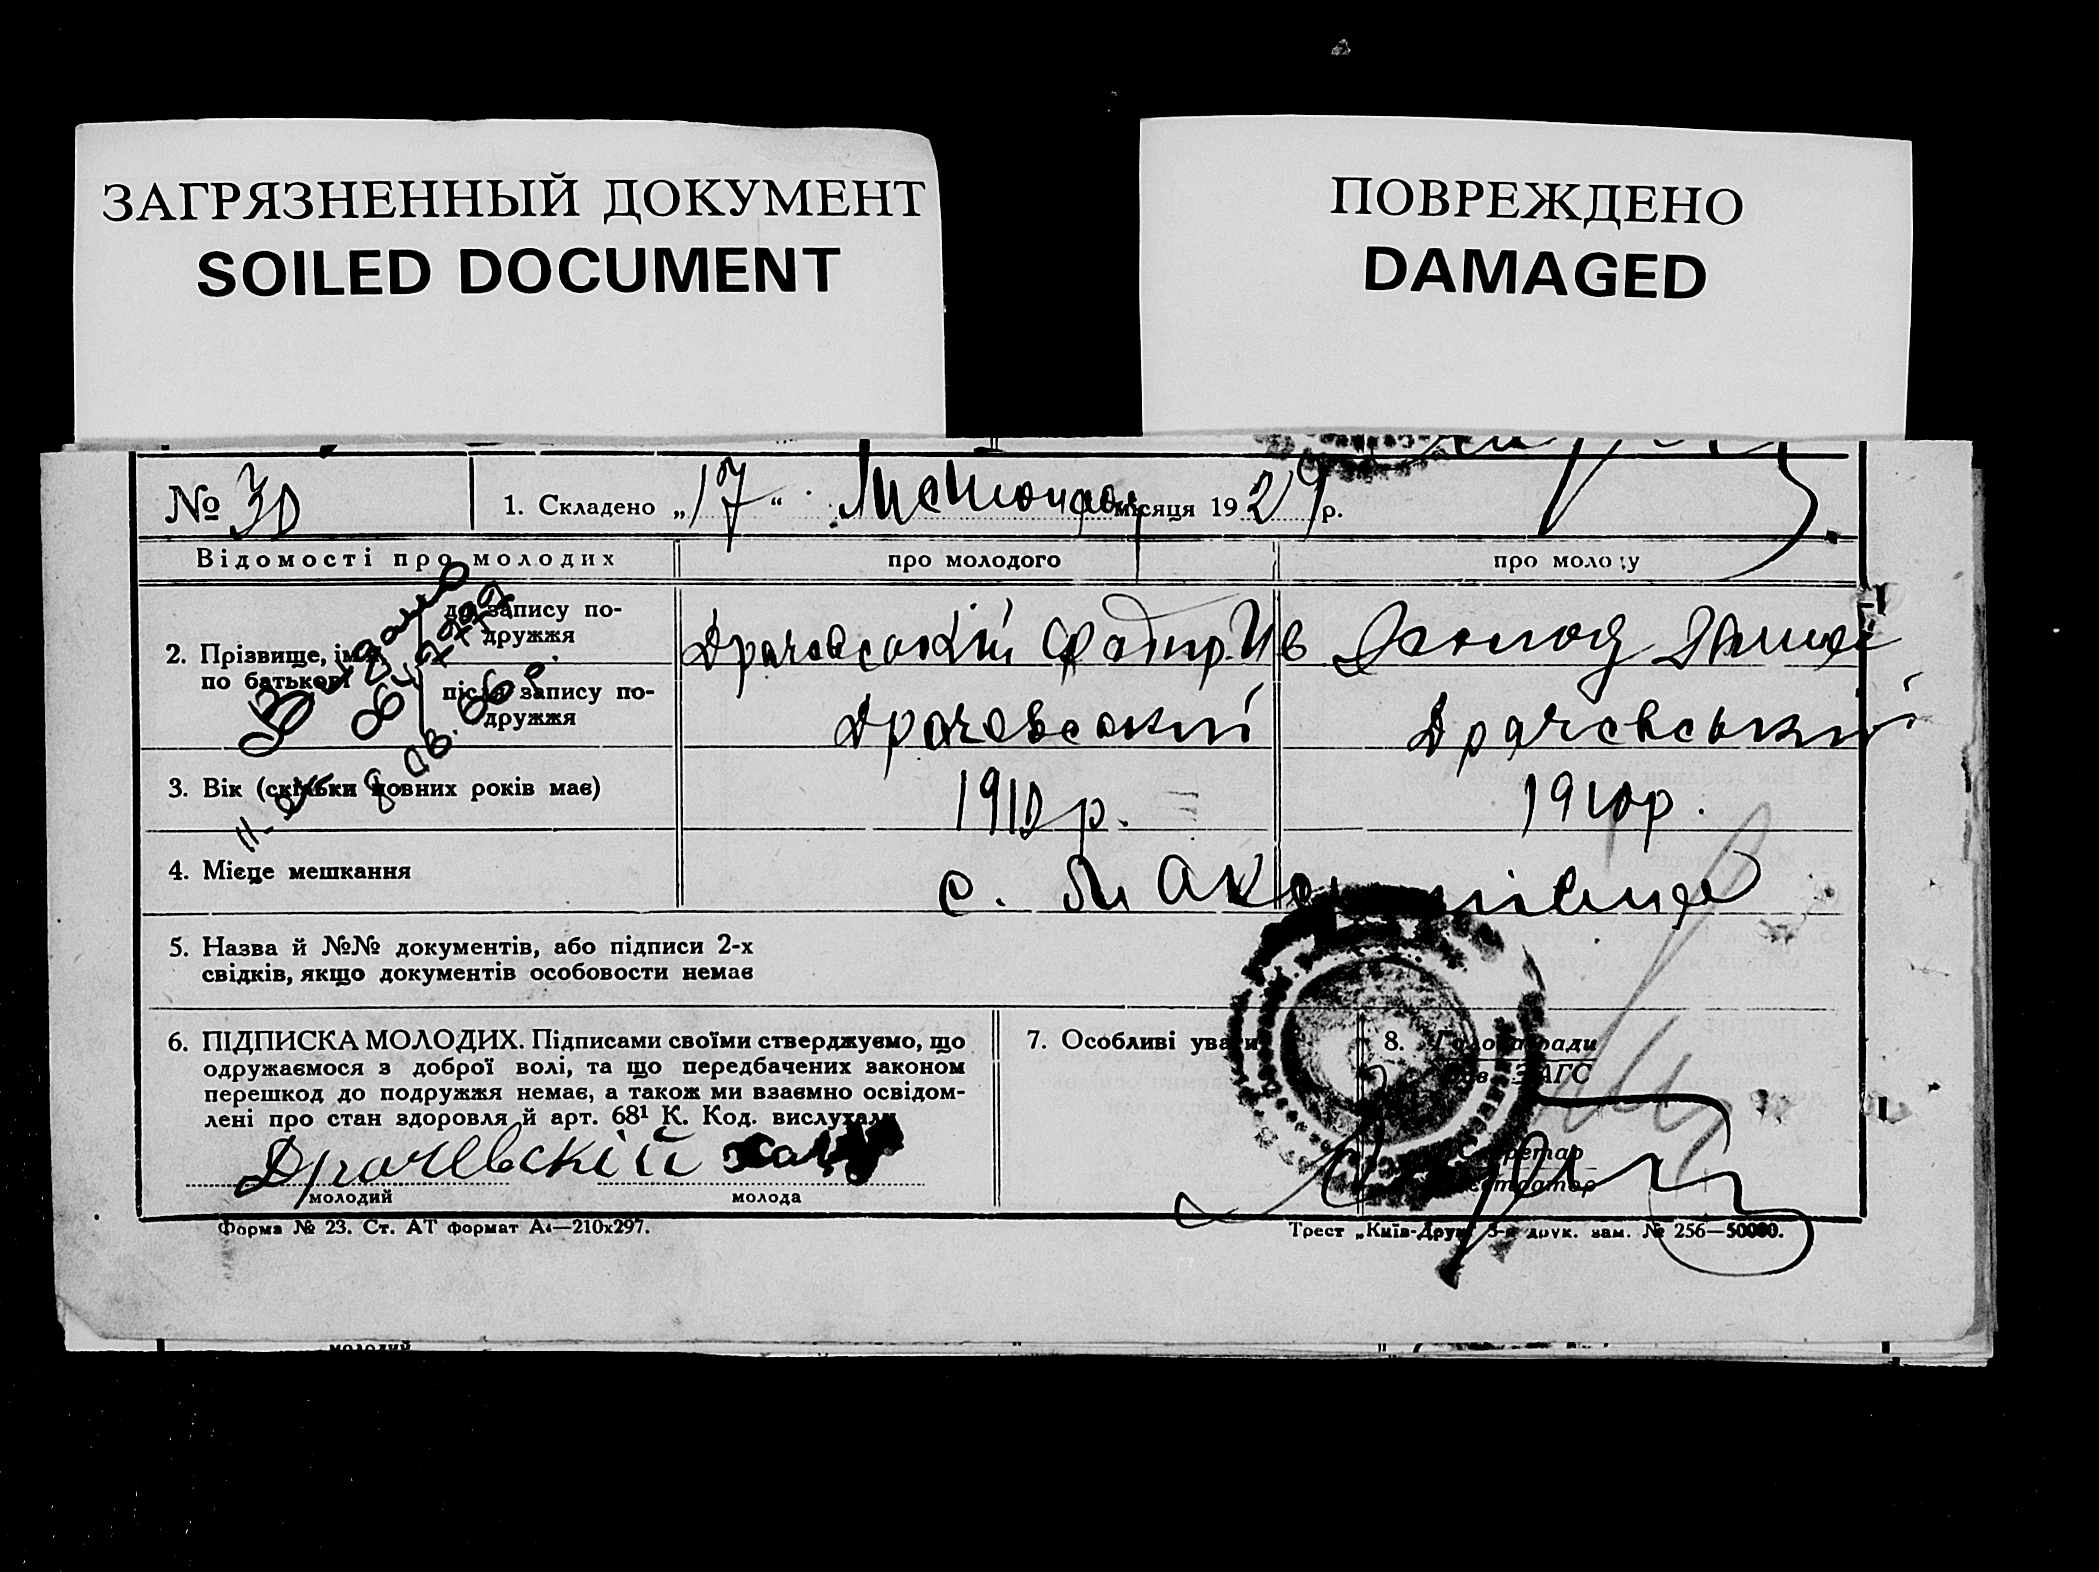 ЗАГРЯЗНЕННЫЙ ДОКУМЕНТ
SOILED DOCUMENT
ПОВРЕЖДЕНО
DAMAGED
№ 30
1. Складено „17“ Листопада місяця 1929 р.
Відомості про молодих
про молодого
про молоду
2. Прізвище, ім'я по батькові
до запису по-
дружжя
Драчевський
після запису по-
дружжя
Драчевський
Драчевський
3. Вік (скільки повних років має)
1910 р.
1910 р.
4. Місце мешкання
с.
5. Назва й №№ документів, або підписи 2-х
свідків, якщо документів особовости немає
6. ПІДПИСКА МОЛОДИХ. Підписами своїми стверджуємо, що
одружаємося з доброї волі, та що передбачених законом
перешкод до подружжя немає, а також ми взаємно освідом-
лені про стан здоровля й арт. 68¹ К. Код. вислухали
Драчевскій
молодий
молода
7. Особливі уваги
8. Голова ради
Зав. ЗАГС
Секретар
Форма № 23. Ст. АТ формат А4—210х297.
Трест „Київ-Друк“ 3-я друк. зам. № 256—50000.
молодий